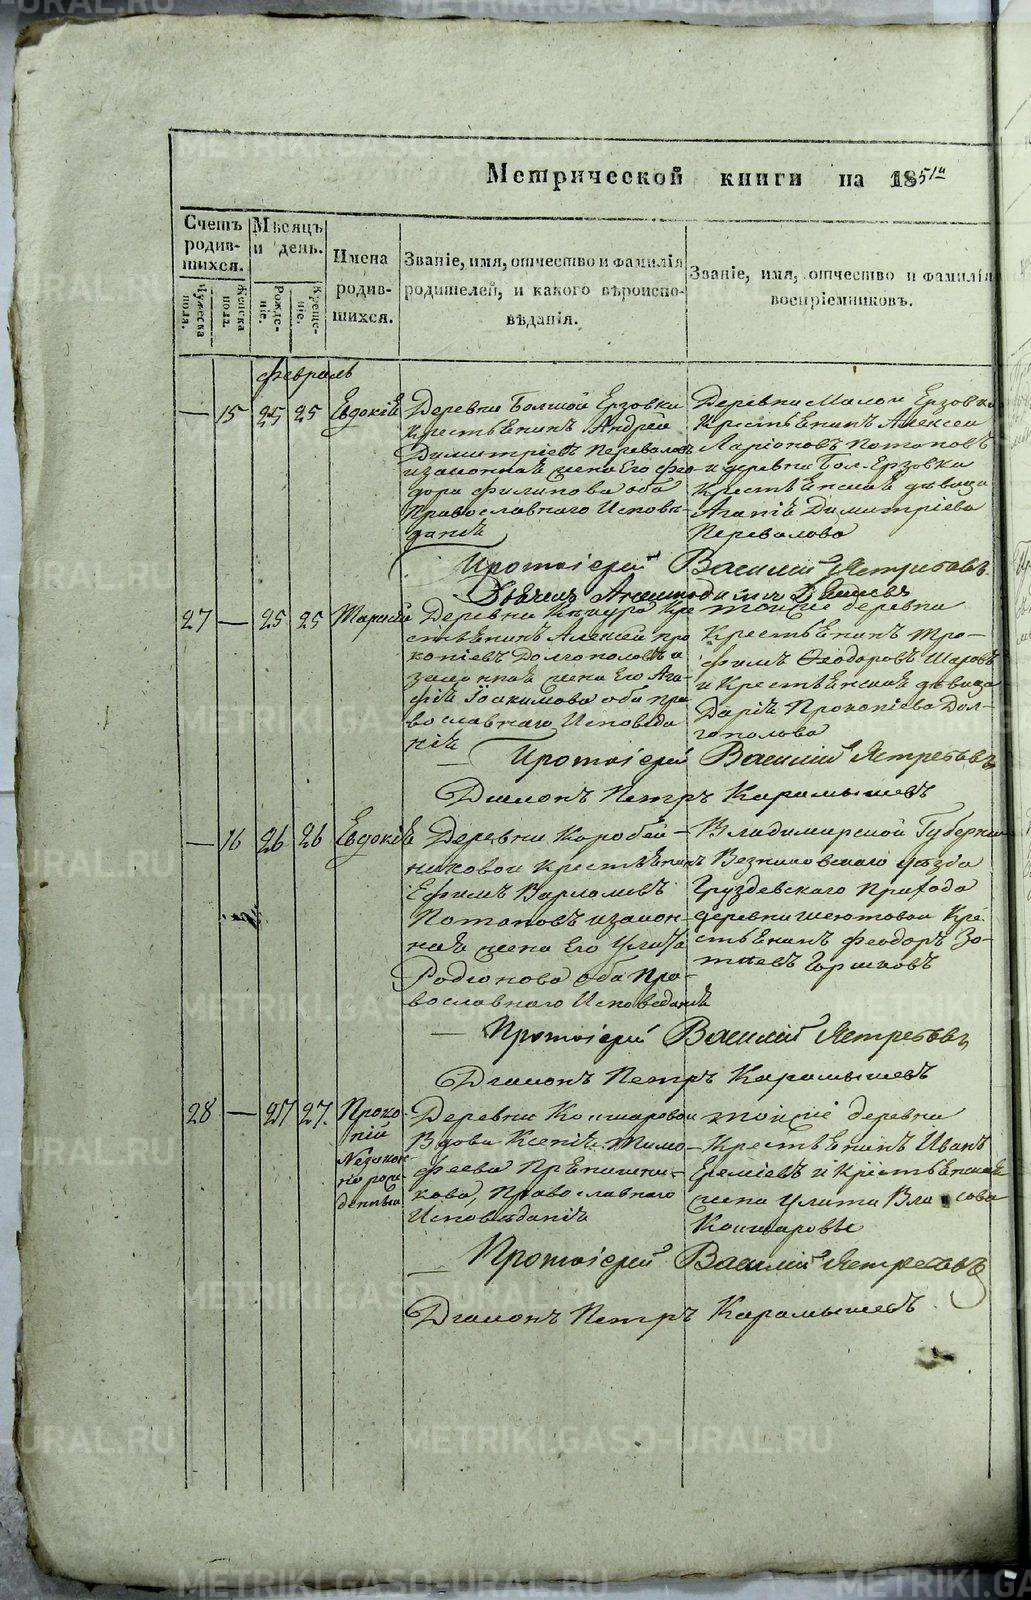 Метрической книги на 1851й
Счетъ родив-шихся.
Мужеска пола.
Женска пола.
Мѣсяцъ и день.
Рожде-ніе.
Креще-ніе.
Имена родив-шихся.
Званіе, имя, отчество и фамилія
родителей, и какого вѣроиспо-
вѣданія.
Званіе, имя, отчество и фамилія
воспріемниковъ.
Февраль
— 15 25 25 Евдокія
Деревни Большой Ерзовки
Крестьянинъ Андрей
Димитріевъ Переваловъ
и законная жена Его Фео
дора Филипова оба
Православнаго Исповѣ-
данія
Деревни Малой Ерзовки
Крестьянинъ Алексей
Ларіоновъ Потаповъ
и деревни Бол. Ерзовки
Крестьянская дѣвица
Агапія Димитріева
Перевалова
Протоіерей Василій Ястребовъ
27 — 25 25 Тарасій
Крестьянинъ Алексей Про
копіевъ Долгополовъ и
законная жена Его Ага-
фія Іоакимова оба пра
вославнаго Исповѣда
нія
тойже деревни
Крестьянинъ Тро-
фимъ Феодоровъ Шаровъ
и Крестьянская дѣвица
Дарія Прокопіева Дол-
гополова
Протоіерей Василій Ястребовъ
Диаконъ Петръ Карамышевъ
— 16 26 26 Евдокія
Деревни Коробей-
никовой Крестьянинъ
Ефимъ Варламовъ
Потаповъ и закон-
ная жена Его Улита
Родіонова оба Пра-
вославнаго Исповеданія
Владимирской Губерніи
Везниковскаго уѣзда
Груздевскаго Прихода
деревни Кре-
стьянинъ Феодоръ Зо-
тиевъ Горшковъ
Протоіерей Василій Ястребовъ
Диаконъ Петръ Карамышевъ
28 — 27 27. Проко-
пій
Незакон-
но рож-
денный
Деревни Кошкаровой
Вдова Ксенія Тимо-
феева
Православнаго
Исповѣданія
тойже деревни
Крестьянинъ Иванъ
Еремѣевъ и Крестьянская
жена Улита Власова
Кошкаровы
Протоіерей Василій Ястребовъ
Диаконъ Петръ Карамышевъ
METRIKI.GASO-URAL.RU